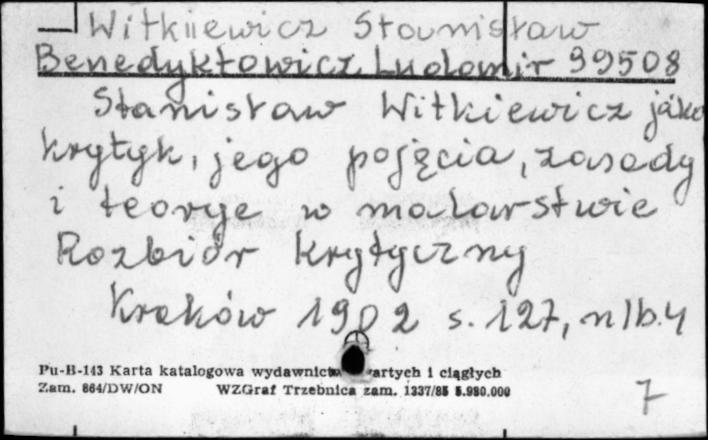 Witkiewicz Stanisław
Benedyktowicz Ludomir 99508
Stanisław Witkiewicz jako
krytyk, jego pojęcia, zasady
i teorye w malarstwie
Rozbiór krytyczny
Kraków 1902 s. 127, nlb. 4
Pu-B-143 Karta katalogowa wydawnictw zwartych i ciągłych
Zam. 864/DW/ON WZGraf Trzebnica zam. 1337/85 5.980.000
7